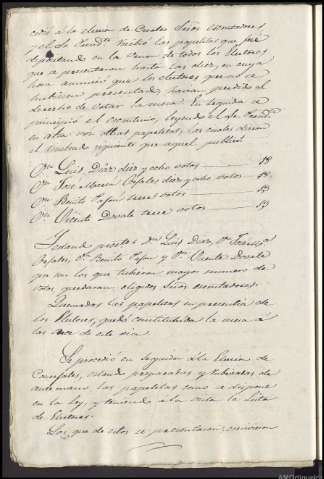 cedió á la elección de Cuatro Señores escrutadores
y el Sr. Presid.te recibió las papeletas que fué
depositando en la Urna de todos los Electores
que se presentaron hasta las diez, en cuya
hora anunció que los electores que no se
hubiesen presentado, habian perdido el
derecho de votar la mesa. En seguida se
principió el escrutinio, leyendo el Sr. Presid.te
en alta voz dichas papeletas, las cuales dieron
el resultado siguiente que aquel publicó
Dn. Luis Diez diez y ocho votos 18
Dn. José Maria diez y ocho votos 18
Dn. Benito trece votos 13
Dn. Vicente trece votos 13
Dn. Luis Diez, Dn.
Dn. Benito y Dn. Vicente
por ser los que tubieron mayor numero de
votos quedaron elegidos Señores escrutadores.
Quemadas las papeletas en presencia de
los Electores, quedó constituida la mesa á
las once de este dia.
Se procedió en seguida á la Eleccion de
Concejales, estando preparadas y rubricadas de
las papeletas como se dispone
en la ley, y teniendo á la vista la Lista
de Electores.
Los que de estos se presentaron